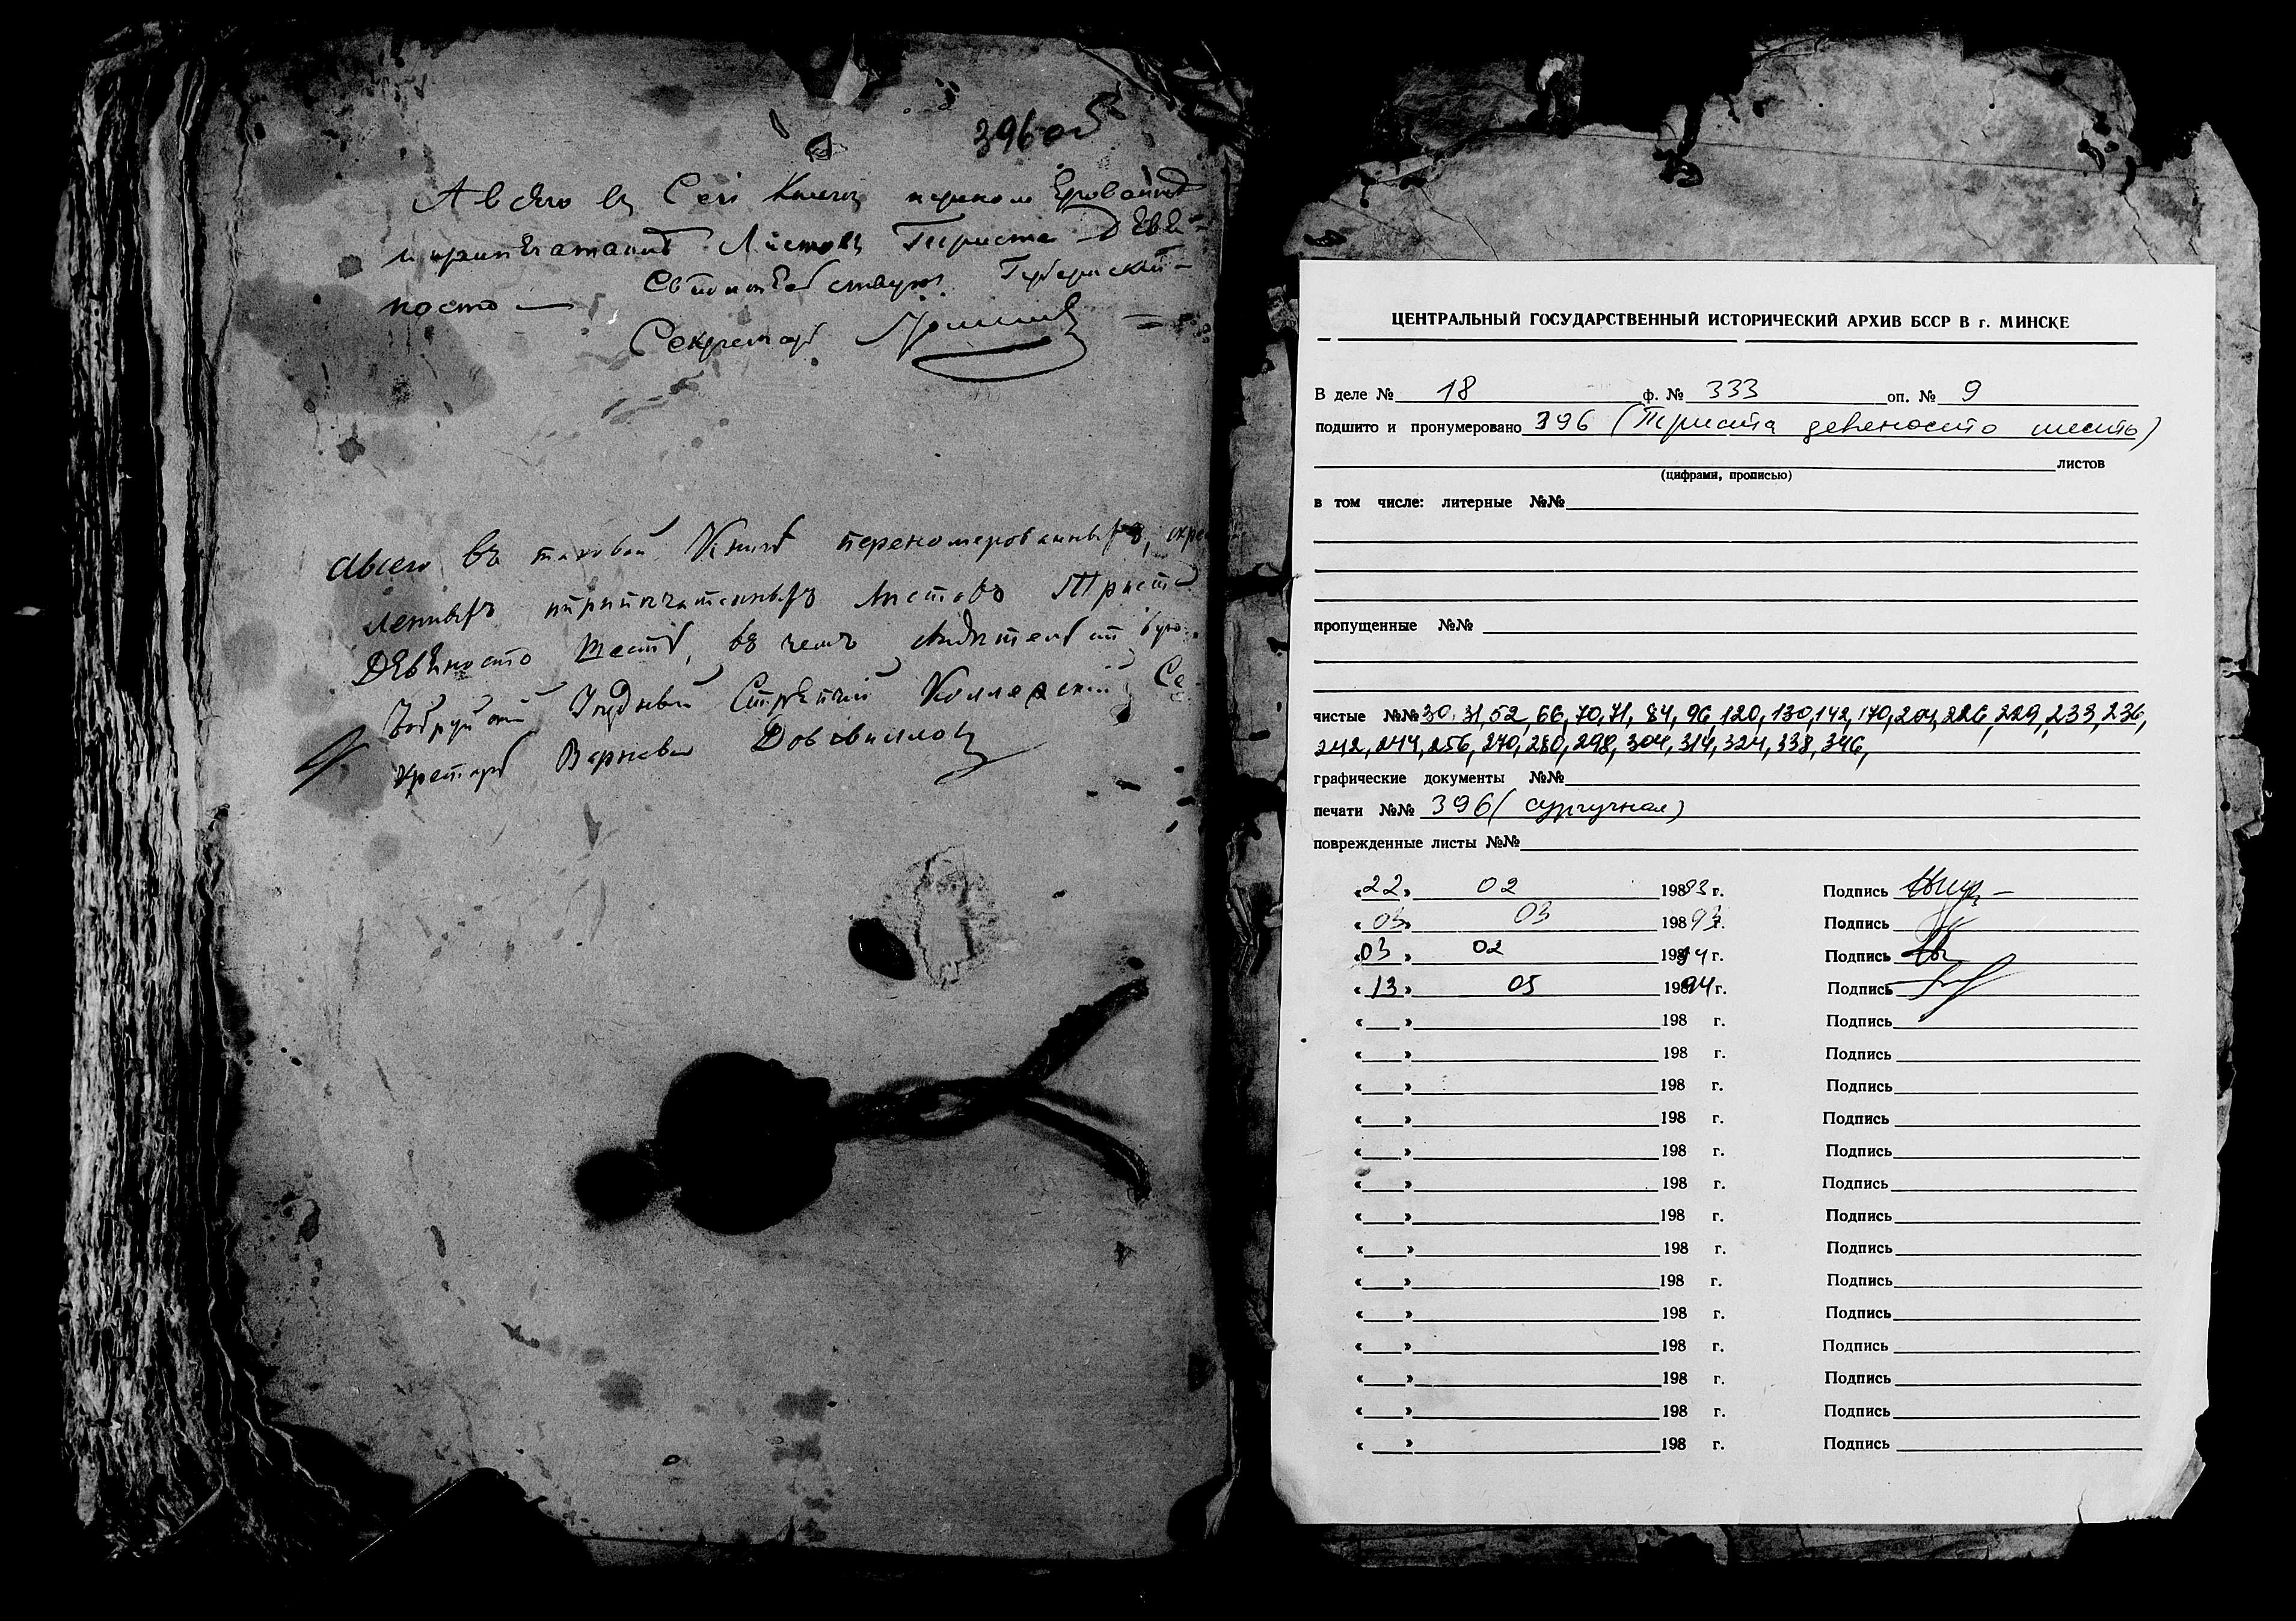 396 об
А всего въ Сей Книги перенумерованныхъ
и припечатанныхъ Листовъ Триста Девя-
носто — Свидетельствую Губернский
Секретарь
Авсего въ таковой Книге переномерованныхъ, скре
пленныхъ припечатанныхъ листовъ Триста
Девеносто Шесть, въ чемъ свидетельствую
Бобруйский Уездный Стряпчий Коллежский Се-
кретарь Довгвилловъ
ЦЕНТРАЛЬНЫЙ ГОСУДАРСТВЕННЫЙ ИСТОРИЧЕСКИЙ АРХИВ БССР В г. МИНСКЕ
В деле № 18 ф. № 333 оп. № 9
подшито и пронумеровано 396 (Триста девяносто шесть)
листов
(цифрами, прописью)
в том числе: литерные №№
пропущенные №№
чистые №№ 30, 31, 52, 66, 70, 71, 84, 96, 120, 130, 142, 170, 204, 226, 229, 233, 236,
242, 244, 256, 270, 280, 298, 304, 314, 324, 338, 346,
графические документы №№
печати №№ 396 (сургучная)
поврежденные листы №№
«22» 02 1993 г. Подпись
«03» 03 1993 г. Подпись
«03» 02 1994 г. Подпись
«13» 05 1994 г. Подпись
«___» 198 г. Подпись
«___» 198 г. Подпись
«___» 198 г. Подпись
«___» 198 г. Подпись
«___» 198 г. Подпись
«___» 198 г. Подпись
«___» 198 г. Подпись
«___» 198 г. Подпись
«___» 198 г. Подпись
«___» 198 г. Подпись
«___» 198 г. Подпись
«___» 198 г. Подпись
«___» 198 г. Подпись
«___» 198 г. Подпись